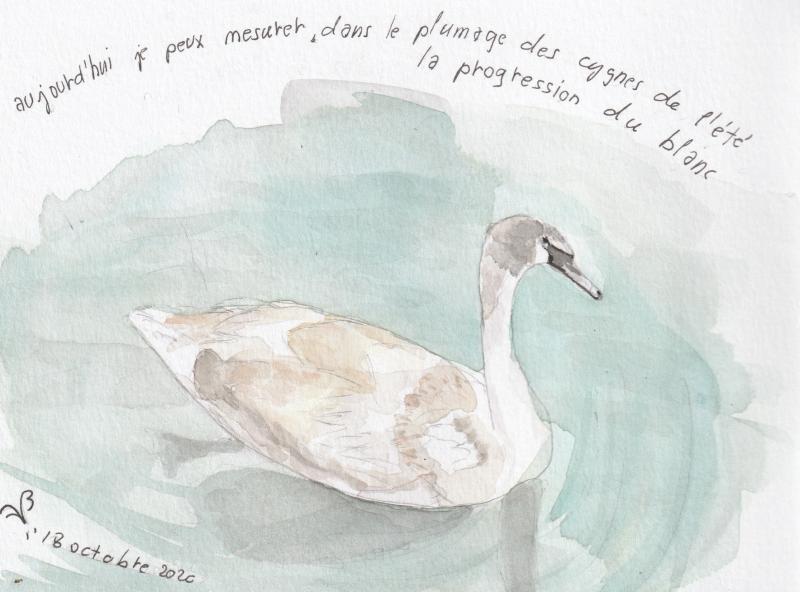 aujourd'hui je peux mesurer, dans le plumage des cygnes de l'été
la progression du blanc
18 octobre 2020